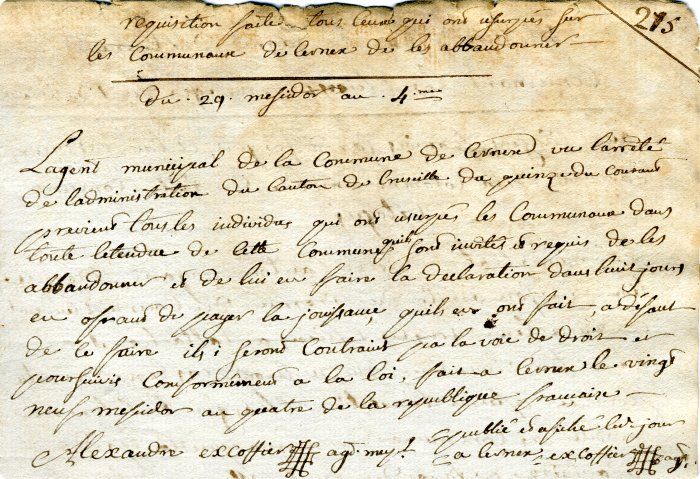 215
requisition faite a tous ceux qui ont usurpés sur
les Communaux de Cernex de les abbandonner
Du 29 mesidor an 4.me
Lagent municipal de la Commune de Cernex vu larreté
de ladministration du Canton de Cruseille du quinze du Courant
previent tous les individus qui ont usurpés les Communaux dans
toute letendue de cette Commune quils sont invités et requis de les
abbandonner et de lui en faire la declaration dans huit jours
en offrant de payer la jouissance quils en ont fait, a défaut
de ce faire ils seront Contraint pa la voie de droit et
poursuivis Conformement a la loi, fait a Cernex le vingt
neuf mesidor an quatre de la republique francaise
publié et afiché led. jour
Alexandre excoffier agt. mpl. a Cernex excoffier agt.